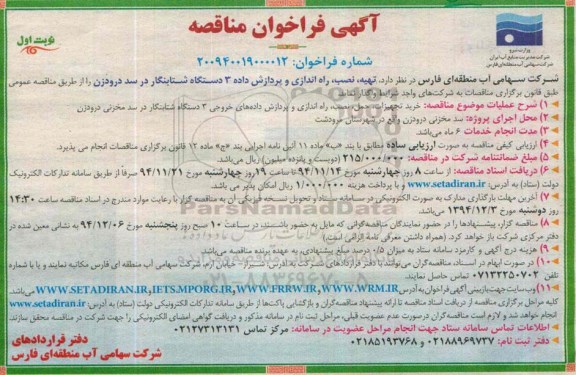 آگهی فراخوان مناقصه
نوبت اول
وزارت نیرو
شرکت مدیریت منابع آب ایران
شرکت سهامی آب منطقه‌ای فارس
شماره فراخوان: ۲۰۰۹۴۰۰۱۹۰۰۰۰۱۲
شرکت سهامی آب منطقه‌ای فارس در نظر دارد، تهیه، نصب، راه اندازی و پردازش داده ۳ دستگاه شتابنگار در سد درودزن را از طریق مناقصه عمومی
طبق قانون برگزاری مناقصات به شرکت‌های واجد شرایط واگذار نماید.
۱) شرح عملیات موضوع مناقصه: خرید تجهیزات، حمل، نصب، راه اندازی و پردازش داده‌های خروجی ۳ دستگاه شتابنگار در سد مخزنی درودزن
۲) محل اجرای پروژه: سد مخزنی درودزن واقع در شهرستان مرودشت
۳) مدت انجام خدمات ۶ ماه می‌باشد.
۴) ارزیابی کیفی مناقصه به صورت ارزیابی ساده مطابق با بند «ب» ماده ۱۱ آئین نامه اجرایی بند «ج» ماده ۱۲ قانون برگزاری مناقصات انجام می پذیرد.
۵) مبلغ ضمانتنامه شرکت در مناقصه: ۲۱۵/۰۰۰/۰۰۰ (دویست و پانزده میلیون) ریال می‌باشد.
۶) دریافت اسناد مناقصه: از ساعت ۸ روز چهارشنبه مورخ ۹۴/۱۱/۱۴ تا ساعت ۱۹ روز چهارشنبه مورخ ۹۴/۱۱/۲۱ صرفاً از طریق سامانه تدارکات الکترونیک
دولت (ستاد) به آدرس: www.setadiran.ir و با پرداخت هزینه ۱/۰۰۰/۰۰۰ ریال امکان پذیر می باشد.
۷) آخرین مهلت بارگذاری مدارک به صورت الکترونیکی در سامانه ستاد و تحویل نسخه فیزیکی آن به مناقصه گزار با رعایت موارد مندرج در اسناد مناقصه ساعت ۱۴:۳۰
روز دوشنبه مورخ ۱۳۹۴/۱۲/۳ می‌باشد.
۸) مناقصه گزار، پیشنهادها را در حضور نمایندگان مناقصه‌گرانی که مایل به حضور باشند، در ساعت ۱۰ صبح روز پنجشنبه مورخ ۹۴/۱۲/۰۶ به نشانی معین شده در
دفتر مرکزی شرکت باز خواهد کرد. (همراه داشتن معرفی نامه الزامی است)
۹) هزینه درج آگهی و کارمزد سامانه ستاد به میزان ۰/۵ درصد مبلغ پیشنهادی، به عهده برنده مناقصه می‌باشد.
۱۰) در صورت ابهام در اسناد، مناقصه گران می‌توانند با دفتر قراردادهای شرکت به آدرس: شیراز- خیابان ارم، شرکت سهامی آب منطقه ای فارس مکاتبه نمایند و یا با شماره
تلفن ۰۷۱۳۲۲۵۰۷۰۲ تماس حاصل نمایند.
۱۱) وب‌سایت جهت بازبینی آگهی فراخوان به آدرس WWW.SETADIRAN.IR,IETS.MPORG.IR, WWW.FRRW.IR, WWW.WRM.IR می‌باشد.
کلیه مراحل برگزاری مناقصه از دریافت اسناد مناقصه تا ارائه پیشنهاد مناقصه گران و بازگشایی پاکت‌ها از طریق سامانه تدارکات الکترونیکی دولت (ستاد) به آدرس: www.setadiran.ir
انجام خواهد شد و لازم است مناقصه گران درصورت عدم عضویت قبلی، مراحل ثبت نام در سامانه مذکور و دریافت گواهی امضای الکترونیکی را جهت شرکت در مناقصه محقق سازند.
اطلاعات تماس سامانه ستاد جهت انجام مراحل عضویت در سامانه: مرکز تماس ۰۲۱۲۷۳۱۳۱۳۱
دفتر ثبت نام: ۰۲۱۸۸۹۶۹۷۳۷ و ۰۲۱۸۵۱۹۳۷۶۸
دفتر قراردادهای
شرکت سهامی آب منطقه‌ای فارس
ParsNamadData